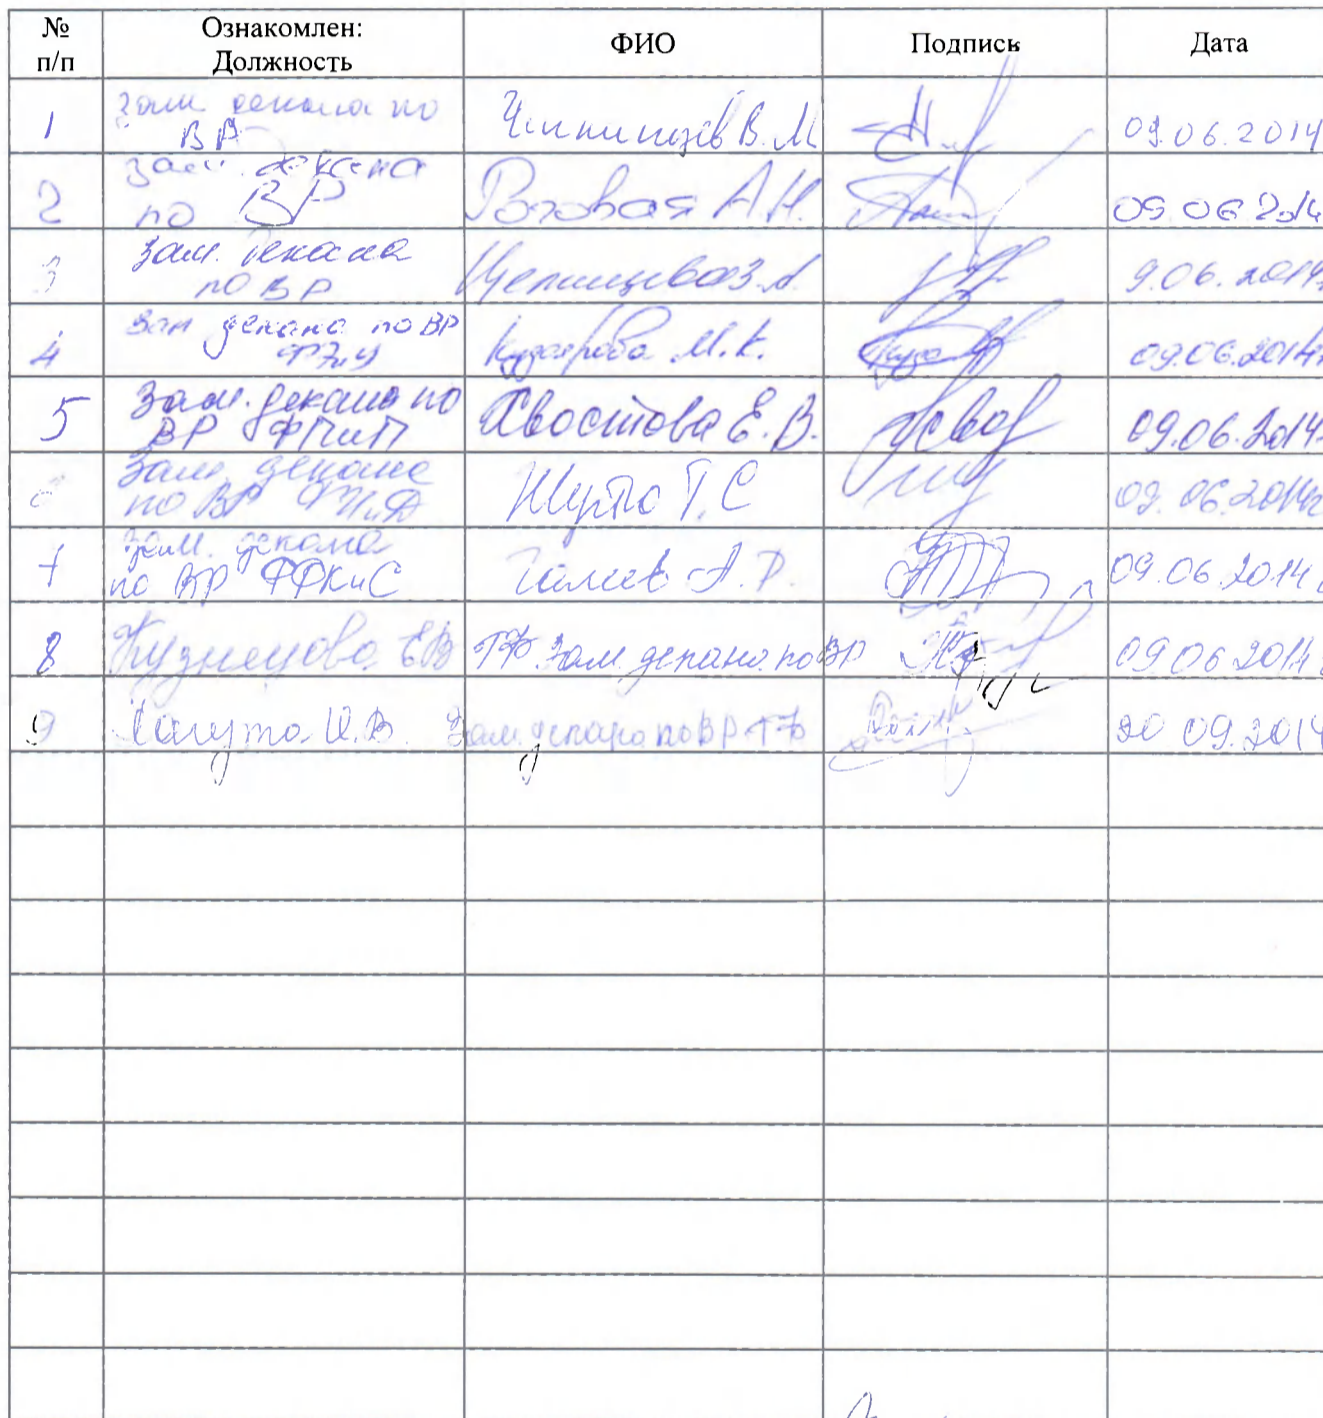 № п/п
Ознакомлен: Должность
ФИО
Подпись
Дата
1
зам. декана по
ВР
В. М
09.06.2014
2
зам. декана
по ВР
Роговая А.Н.
09 06 2014
3
зам. декана
по ВР
9.06.2014
4
зам декана по ВР
М.К.
09.06.2014
5
Зам. декана по
ВР ФПиП
Хвостова Е.В.
09.06.2014
зам. декана
по ВР
Т.С
09.06.2014г
7
зам. декана
по ВР ФФКиС
Галеев А.Р.
09.06.2014г
8
Кузнецова ЕВ
ТФ зам. декана по ВР
09 06 2014
9
И.В.
Зам. декана по ВР ТФ
20 09.2014